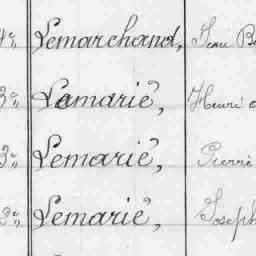 4°, Lemarchand, Jean
3°, Lamarié, Henri
3°, Lemarié, Pierre
3°, Lemarié, Joseph